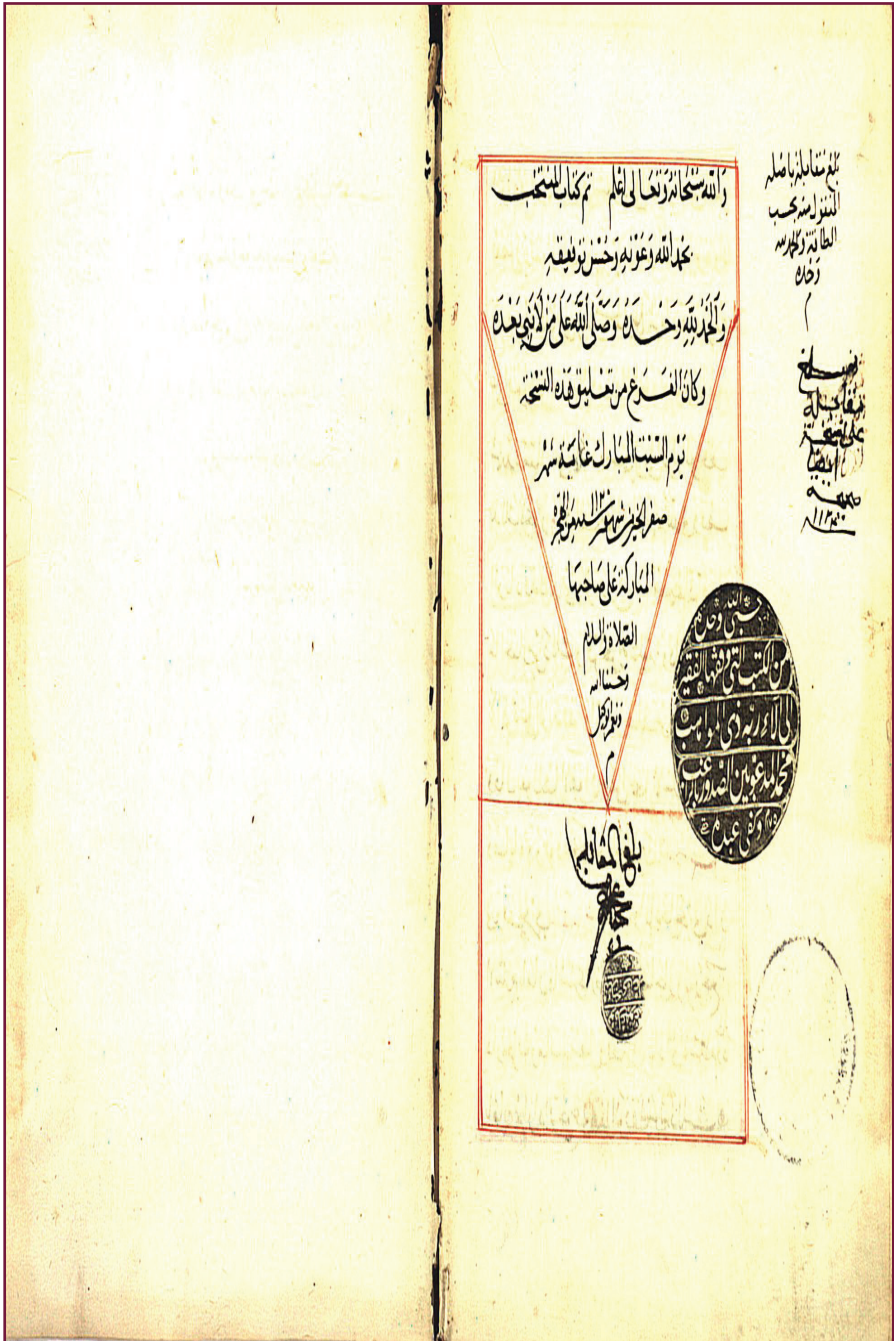 والله سبحانه وتعالى اعلم تم كتاب المنتخب
بحمد الله وعونه وحسن توفيقه
والحمد لله وحده وصلى الله على من لا نبي بعده
وكان الفراغ من تعليق هذه النسخة
يوم السبت المبارك شهر
صفر الخير من شهور سنة
المباركة على صاحبها
الصلاة والسلام
وحسبنا الله
ونعم الوكيل
م
بلغ مقابلة باصله
المنقول منه بحسب
الطاقة والحمد لله
وحده
م
مقابلة
على نسخة
ايضا
بلغ المقابلة
حسبي الله وحده
من الكتب التي وقفها الفقير
الى آلاء ربه ذي المواهب
محمد المدعو بين الصدور براغب
وكفى عبده